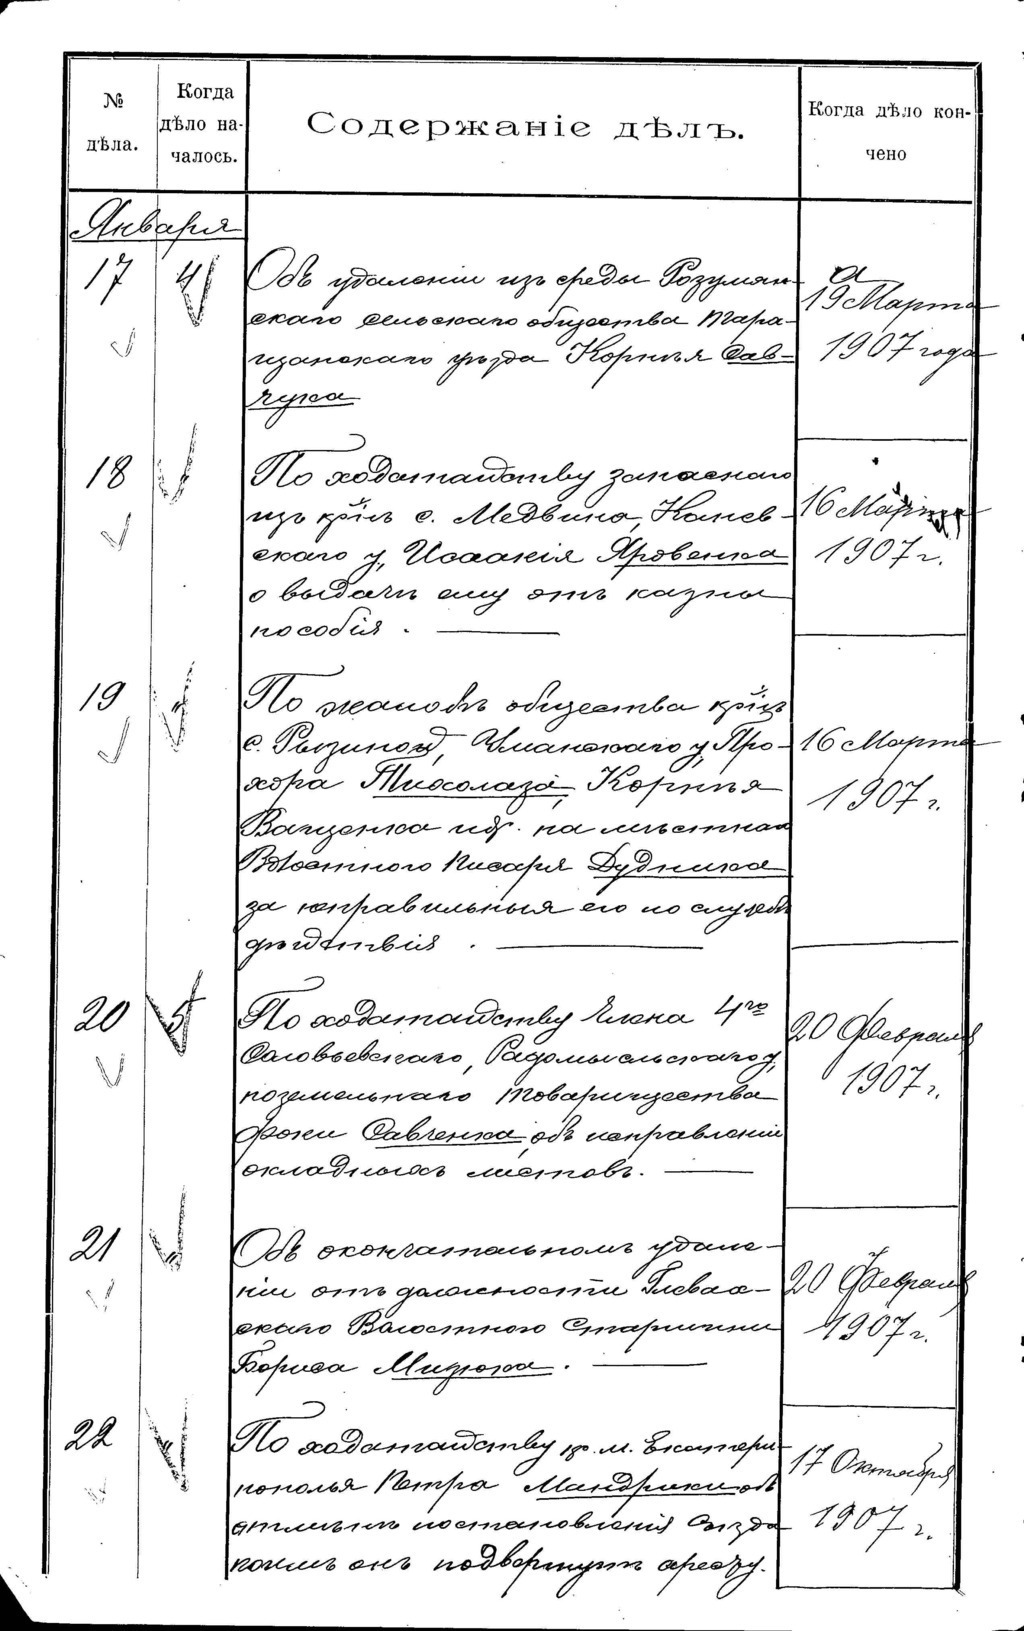 № дѣла.
Когда дѣло на-
чалось.
Содержаніе дѣлъ.
Когда дѣло кон-
чено
Января
17
4
Объ удаленіи изъ среды Розумян-
скаго сельскаго общества Тара-
щанскаго уѣзда Корнѣя Сав-
чука
19 Марта
1907 года
18
По ходатайству запаснаго
изъ кр. с. Медвина, Канев-
скаго у, Исаакія Яровенка
о выдачѣ ему отъ казны
пособія.
16 Марта
1907 г.
19
По жалобѣ общества
с. Рызиной, Уманскаго у, Про-
хора Тихолаза, Корнѣя
Ващенка и др. на мѣстнаго
Волостного Писаря Дудника
за неправильныя его по службѣ
дѣйствія.
16 Марта
1907 г.
20
5
По ходатайству Члена 4го
Соловьевскаго, Радомысльскаго у,
поземельнаго товарищества
Фоки Савченка, объ исправленіи
окладныхъ листовъ.
20 Февраля
1907 г.
21
Объ окончательномъ удале-
ніи отъ должности Глевах-
скаго Волостного Старшины
Бориса Мизюка.
20 Февраля
1907 г.
22
По ходатайству кр. м. Екатери-
нополья Петра Мандрики объ
отмѣнѣ постановленія Съѣзда
коимъ онъ подвергнутъ аресту.
17 Октября
1907 г.